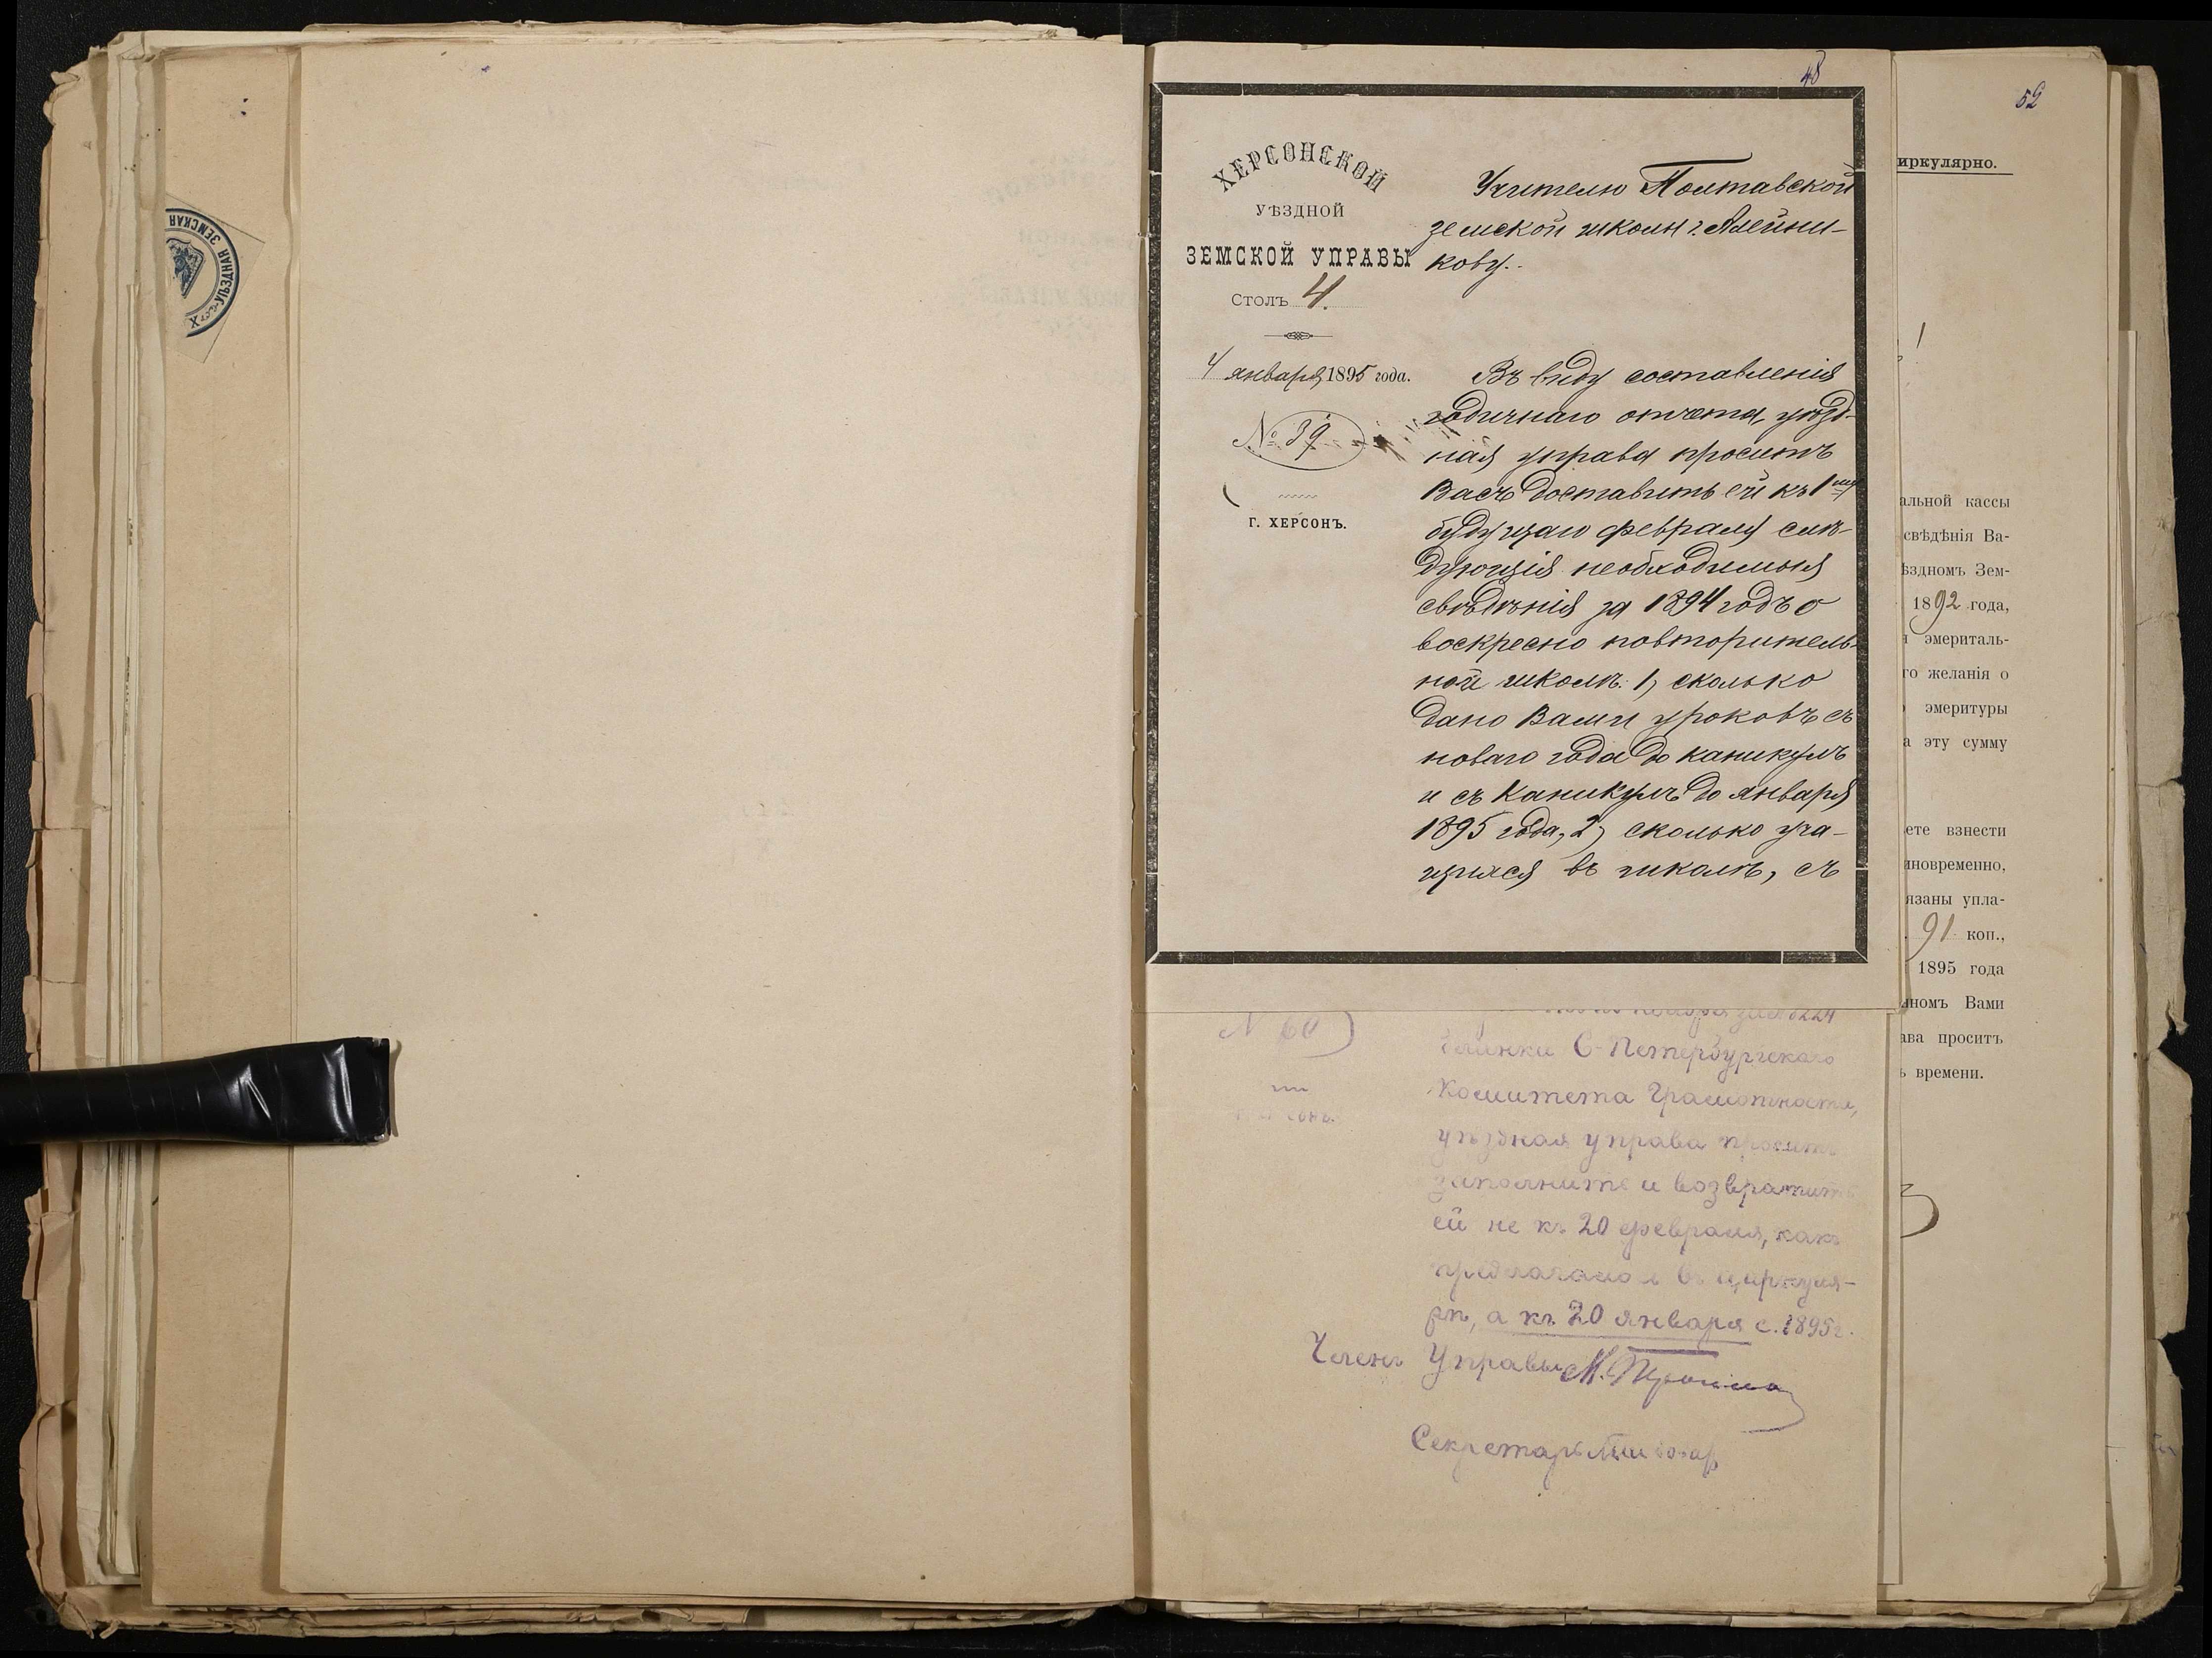 48
ХЕРСОНСКОЙ
УѢЗДНОЙ
ЗЕМСКОЙ УПРАВЫ
СТОЛЪ 4.
4 января 1895 года.
№ 39
Г. ХЕРСОНЪ.
Учителю Полтавской
земской школы г. Алейни-
кову.
Въ виду составленія
годичнаго отчета, уѣзд-
ная управа проситъ
Васъ доставить ей къ 1му
будущаго февраля слѣ-
дующія необходимыя
свѣдѣнія за 1894 годъ о
воскресно повторитель-
ной школѣ: 1) сколько
дано Вами уроковъ съ
новаго года до каникулъ
и съ каникулъ до января
1895 года, 2) сколько уча-
щихся въ школѣ, съ
№ 60
бланки С-Петербургскаго
Комитета Грамотности,
уѣздная управа проситъ
заполнить и возвратить
ей не къ 20 февраля, какъ
предлагалось въ циркуля-
рѣ, а къ 20 января с. 1895 г.
Членъ Управы М.
Секретарь
52
иркулярно.
альной кассы
свѣдѣнія Ва-
ѣздномъ Зем-
1892 года,
эмериталь-
го желанія о
эмеритуры
а эту сумму
ете взнести
иновременно,
язаны упла-
91 коп.,
1895 года
нномъ Вами
ава проситъ
ь времени.
УѢЗДНАЯ ЗЕМСКАЯ